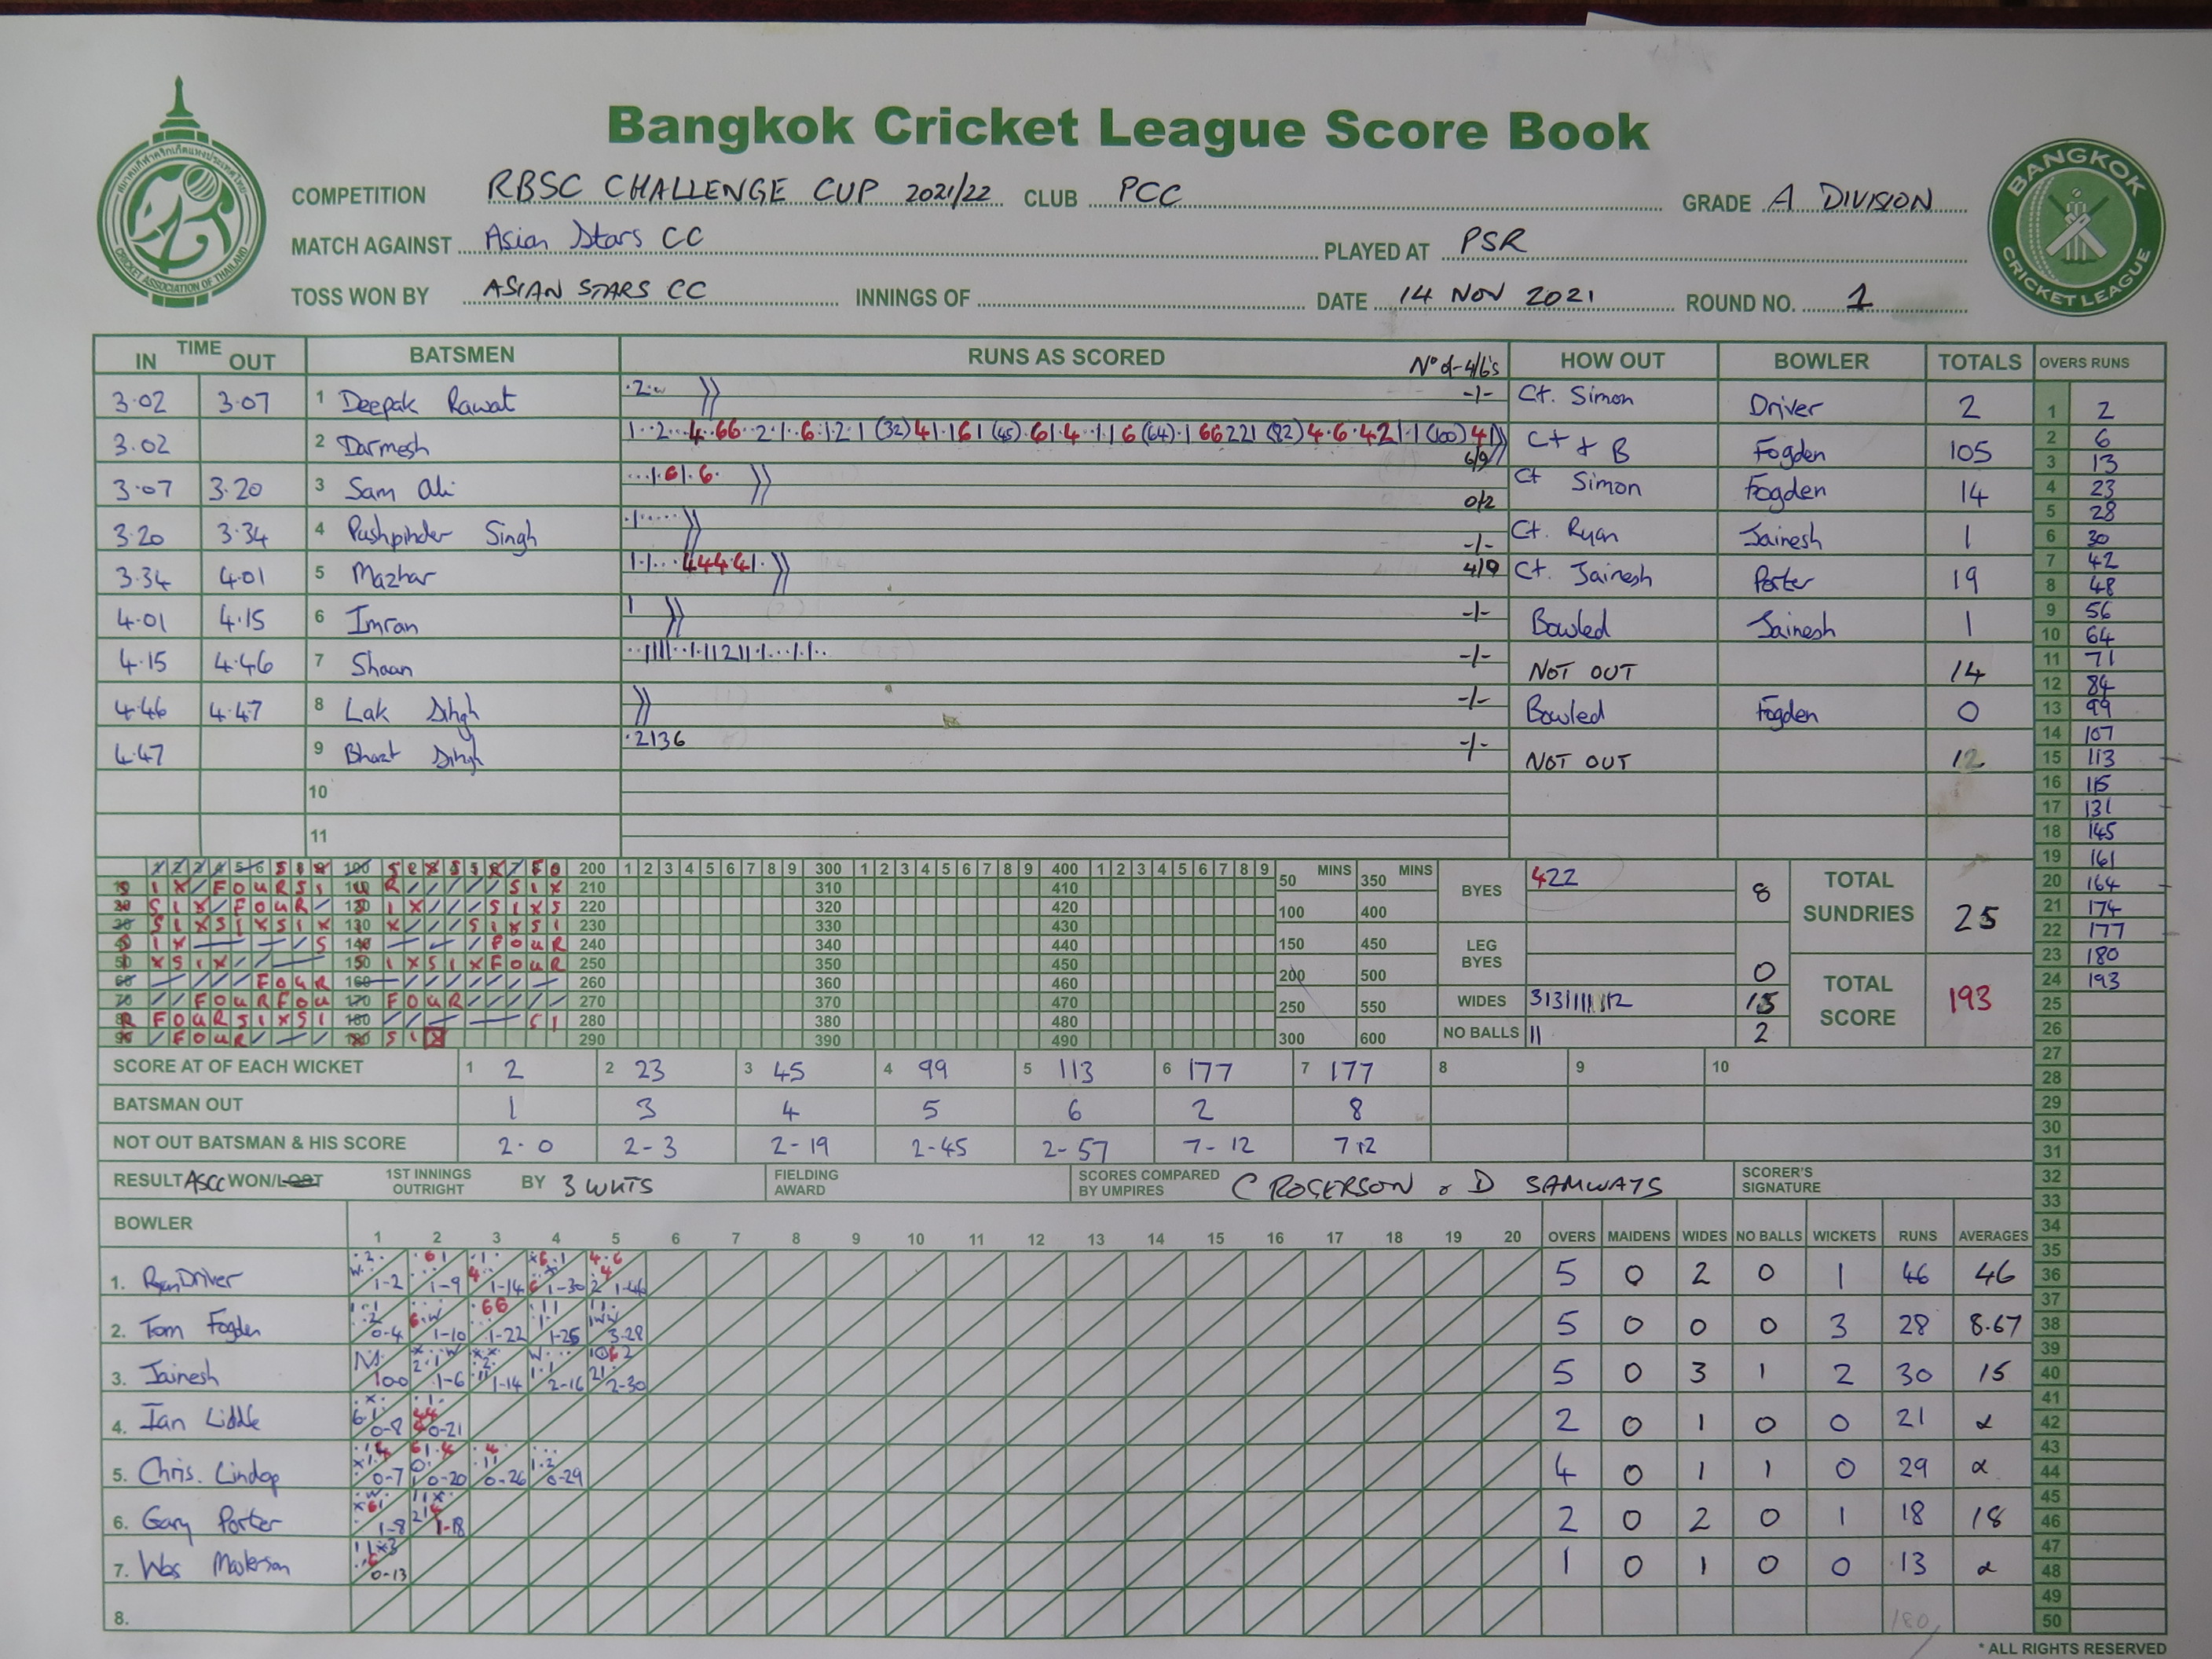 Bangkok Cricket League Score Book
สมาคมกีฬาคริกเก็ตแห่งประเทศไทย
CRICKET ASSOCIATION OF THAILAND
BANGKOK CRICKET LEAGUE
COMPETITION RBSC CHALLENGE CUP 2021/22 CLUB PCC GRADE A DIVISION
MATCH AGAINST Asian Stars CC PLAYED AT PSR
TOSS WON BY ASIAN STARS CC INNINGS OF DATE 14 NOV 2021 ROUND NO. 1
TIME IN OUT BATSMEN RUNS AS SCORED Nº of 4/6's HOW OUT BOWLER TOTALS OVERS RUNS
3.02 3.07 1 Deepak Rawat -/- Ct. Simon Driver 2
3.02 2 Darmesh 6/9 Ct & B Fogden 105
3.07 3.20 3 Sam Ali 0/2 Ct Simon Fogden 14
3.20 3.34 4 Pushpinder Singh -/- Ct. Ryan Jainesh 1
3.34 4.01 5 Mazhar 4/0 Ct. Jainesh Porter 19
4.01 4.15 6 Imran 1 -/- Bowled Jainesh 1
4.15 4.46 7 Shaan -/- NOT OUT 14
4.46 4.47 8 Lak Singh -/- Bowled Fogden 0
4.47 9 Bharat Singh ·2136 -/- NOT OUT 12
10
11
1 2
2 6
3 13
4 23
5 28
6 30
7 42
8 48
9 56
10 64
11 71
12 84
13 99
14 107
15 113
16 115
17 131
18 145
19 161
20 164
21 174
22 177
23 180
24 193
25
26
27
28
29
30
31
32
33
34
35
36
37
38
39
40
41
42
43
44
45
46
47
48
49
50
200 1 2 3 4 5 6 7 8 9 300 1 2 3 4 5 6 7 8 9 400 1 2 3 4 5 6 7 8 9
210 310 410
220 320 420
230 330 430
240 340 440
250 350 450
260 360 460
270 370 470
280 380 480
290 390 490
MINS MINS
50 350
100 400
150 450
200 500
250 550
300 600
BYES 422 8
LEG BYES 0
WIDES 15
NO BALLS 11 2
TOTAL SUNDRIES 25
TOTAL SCORE 193
SCORE AT OF EACH WICKET 1 2 2 23 3 45 4 99 5 113 6 177 7 177 8 9 10
BATSMAN OUT 1 3 4 5 6 2 8
NOT OUT BATSMAN & HIS SCORE 2-0 2-3 2-19 2-45 2-57 7-12 7 12
RESULT ASCC WON/LOST 1ST INNINGS OUTRIGHT BY 3 WKTS FIELDING AWARD SCORES COMPARED BY UMPIRES C ROGERSON & D SAMWAYS SCORER'S SIGNATURE
BOWLER 1 2 3 4 5 6 7 8 9 10 11 12 13 14 15 16 17 18 19 20 OVERS MAIDENS WIDES NO BALLS WICKETS RUNS AVERAGES
1. Ryan Driver 1-2 1-9 1-14 1-30 1-46 5 0 2 0 1 46 46
2. Tom Fogden 0-4 1-10 1-22 1-25 3-28 5 0 0 0 3 28 8.67
3. Jainesh 1-6 1-14 2-16 2-30 5 0 3 1 2 30 15
4. Ian Liddle 0-8 0-21 2 0 1 0 0 21 α
5. Chris. Lindop 0-7 0-20 0-26 0-29 4 0 1 1 0 29 α
6. Gary Porter 1-8 1-18 2 0 2 0 1 18 18
7. Wes 0-13 1 0 1 0 0 13 α
8. 180
* ALL RIGHTS RESERVED